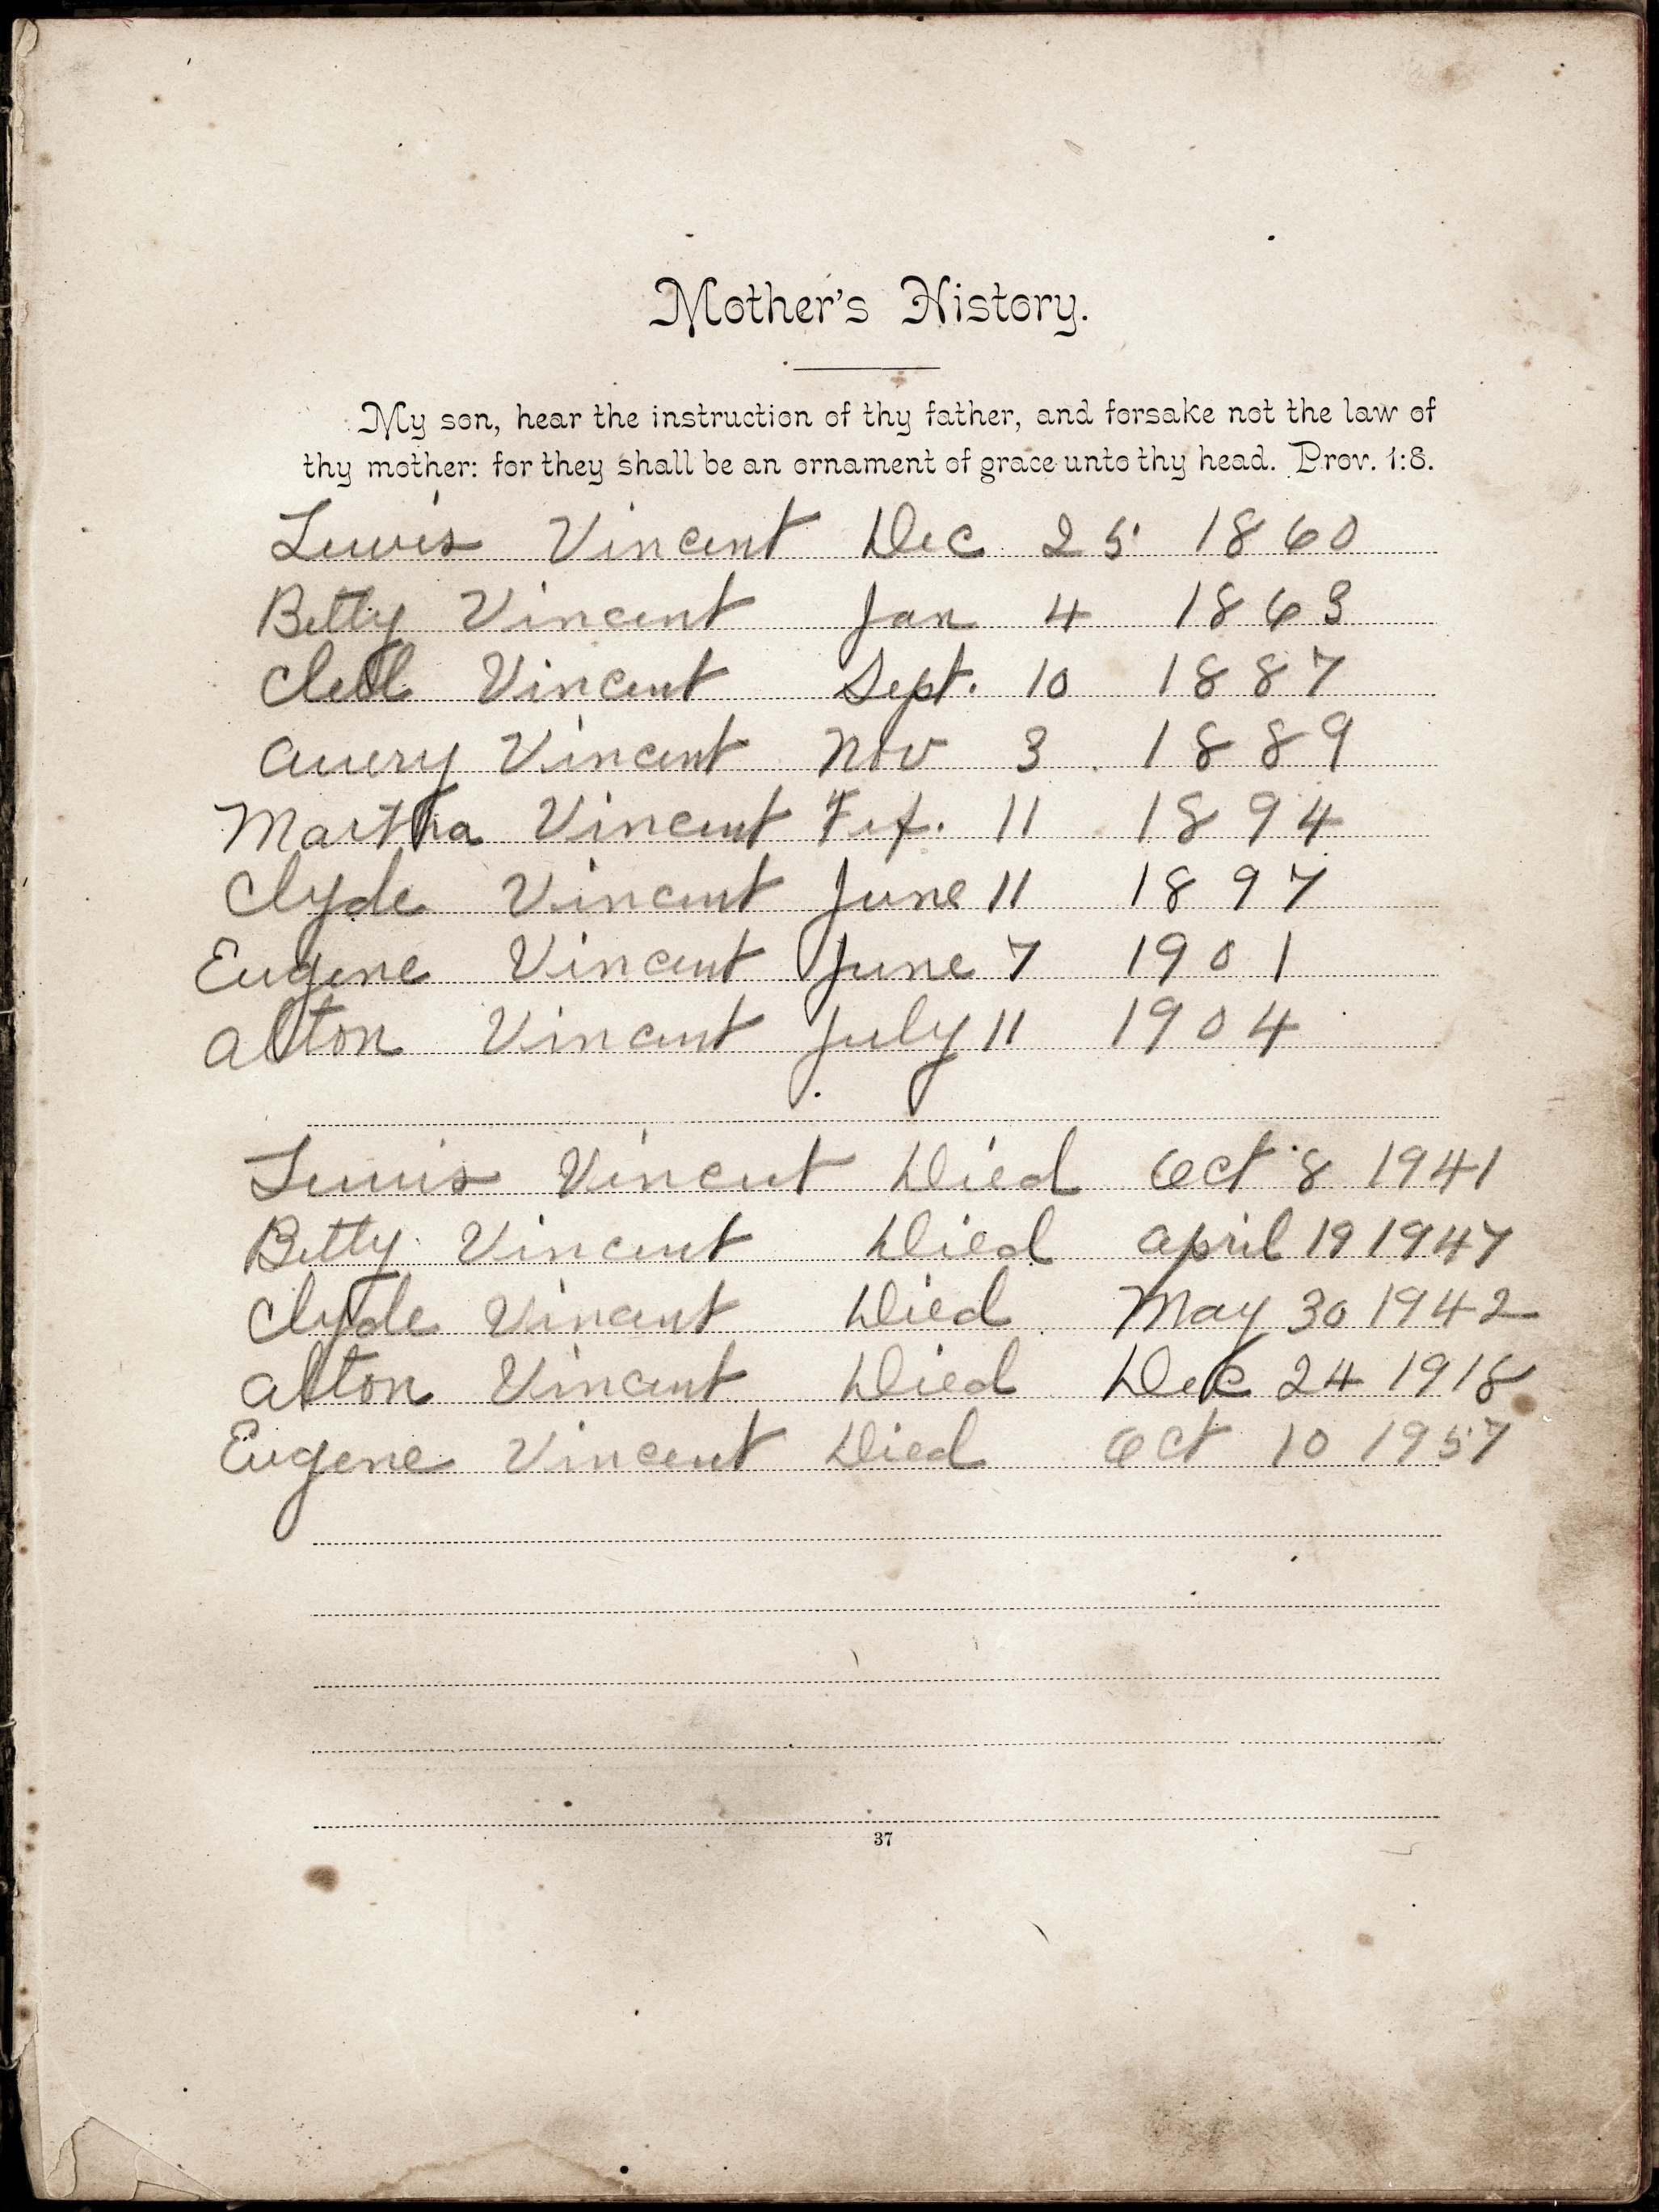 Mother's History.
My son, hear the instruction of thy father, and forsake not the law of
thy mother: for they shall be an ornament of grace unto thy head. Prov. 1:8.
Lewis Vincent Dec 25 1860
Betty Vincent Jan 4 1863
Vincent Sept. 10 1887
Avery Vincent Nov 3 1889
Martha Vincent Fef. 11 1894
Clyde Vincent June 11 1897
Eugene Vincent June 7 1901
Alton Vincent July 11 1904
Lewis Vincent Died Oct 8 1941
Betty Vincent Died April 19 1947
Clyde Vincent Died May 30 1942
Alton Vincent Died Dec 24 1918
Eugene Vincent Died Oct 10 1957
37